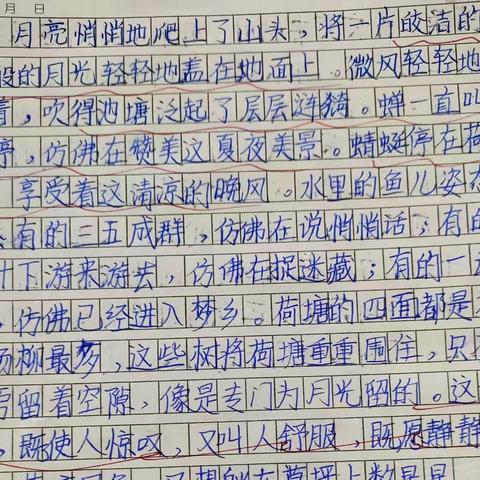 月 日
月亮悄悄地爬上了山头，将一片皎洁的
般的月光轻轻地盖在地面上。微风轻轻地
着，吹得池塘泛起了层层涟漪。蝉一直叫
停，仿佛在赞美这夏夜美景。蜻蜓停在荷
享受着这清凉的晚风。水里的鱼儿姿态
有的三五成群，仿佛在说悄悄话；有的
叶下游来游去，仿佛在捉迷藏；有的一
，仿佛已经进入梦乡。荷塘的四面都是
杨柳最多，这些树将荷塘重重围住，只
旁留着空隙，像是专门为月光留的。这
，既使人惊叹，又叫人舒服，既愿静静
想到在草坪上数星星